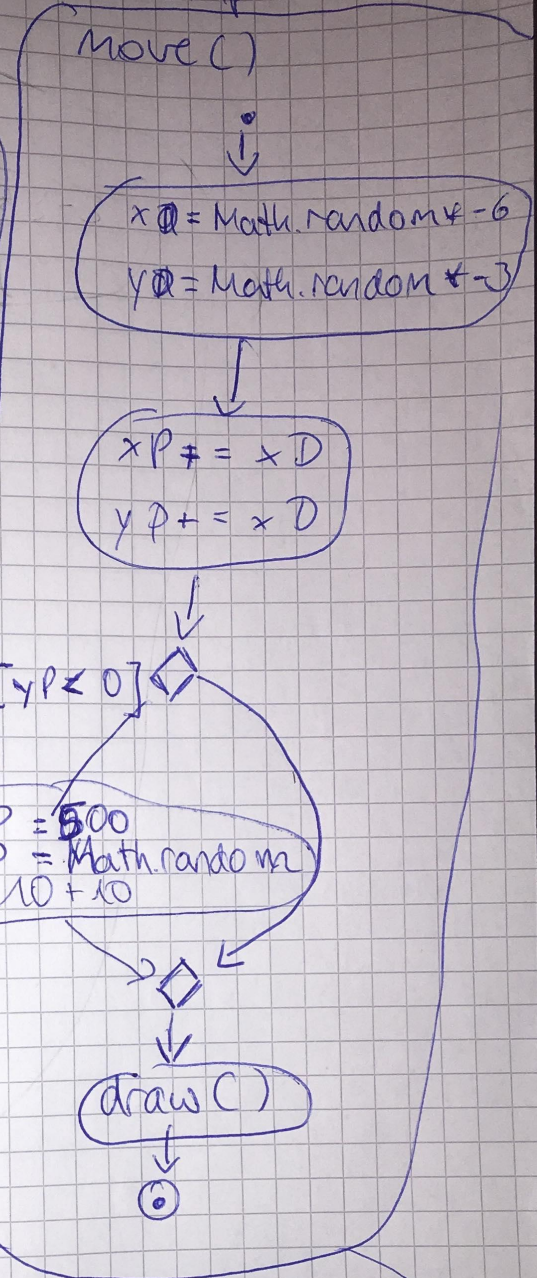 move()
xD = Math.random * -6
yD = Math.random * -3
xP += xD
yP += xD
[yP < 0]
= 500
= Math.random
10 + 10
draw()